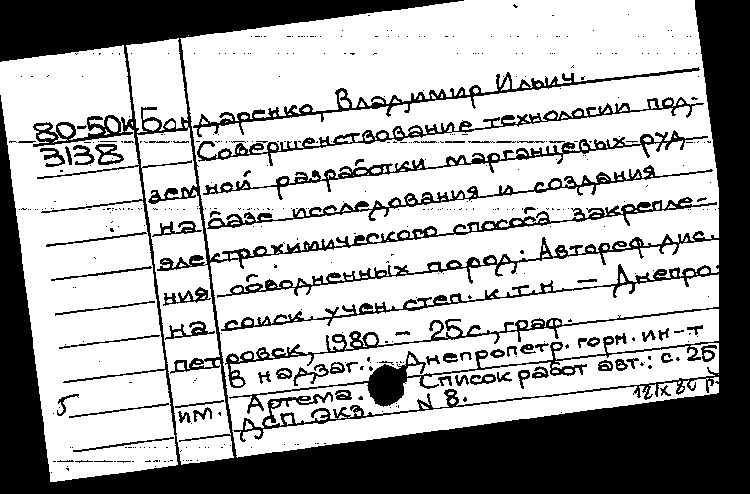 80-50к Бондаренко, Владимир Ильич.
3138 Совершенствование технологии под-
земной разработки марганцевых руд
на базе исследования и создания
электрохимического способа закрепле-
ния обводненных пород: Автореф. дис.
на соиск. учен. степ. к.т.н. – Днепро-
петровск, 1980. – 25 с., граф.
В надзаг.: Днепропетр. горн. ин-т
5 им. Артема. Список работ авт.: с. 25
Дсп. Экз. N 8.